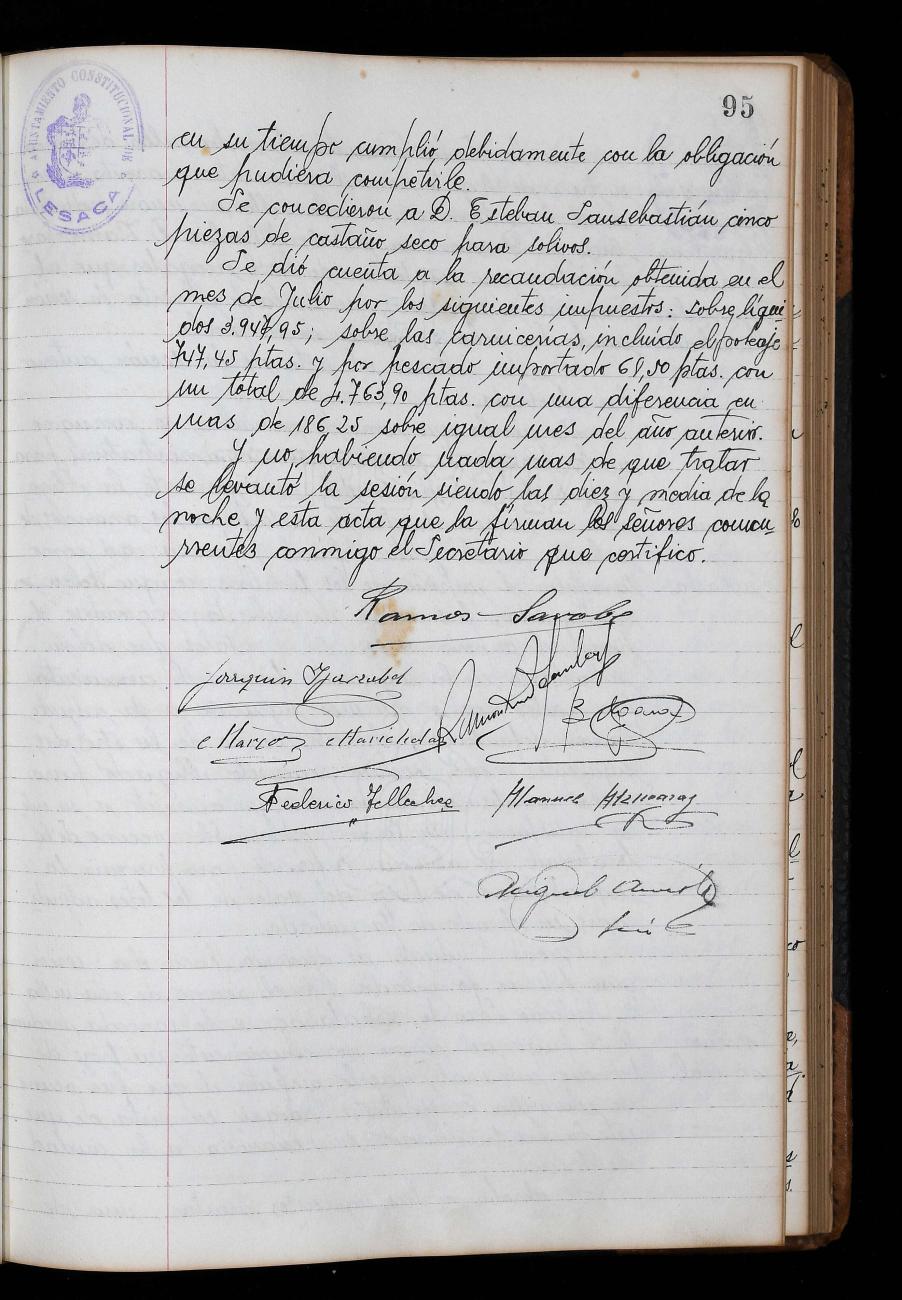 95
AYUNTAMIENTO CONSTITUCIONAL DE
LESACA
en su tiempo cumplió debidamente con la obligación
que pudiera competirle.
Se concedieron a D. Esteban Sansebastián cinco
piezas de castaño seco para solivos.
Se dió cuenta a la recaudación obtenida en el
mes de Julio por los siguientes impuestos: sobre líqui-
dos 3.947,95; sobre las carnicerías, incluído el porteaje
747,45 ptas. y por pescado importado 68,50 ptas. con
un total de 4.763,90 ptas. con una diferencia en
mas de 186,25 sobre igual mes del año anterior.
Y no habiendo nada mas de que tratar
se levantó la sesión siendo las diez y media de la
noche y esta acta que la firman los señores concu-
rrentes conmigo el Secretario que certifico.
Ramos Sarobe
Joaquin
Marzo Marichalar
Federico Tellechea
Manuel
Miguel